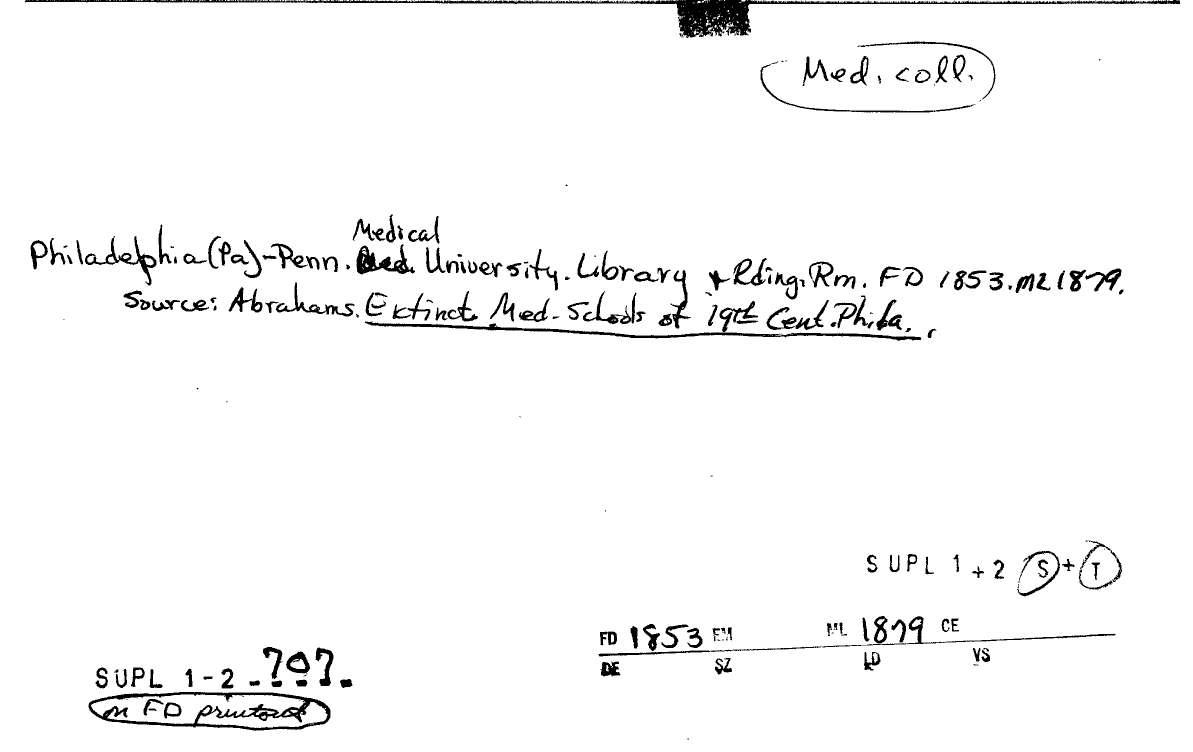 Med. coll.
Medical
Philadelphia (Pa)-Penn. Med. University. Library + Rding. Rm. FD 1853. ML 1879.
Source: Abrahams. Extinct Med. Schools of 19th Cent. Phila.
SUPL 1 + 2 S + T
FD 1853 EM ML 1879 CE
DE SZ LD VS
SUPL 1-2 - ?0?.
on FD printout